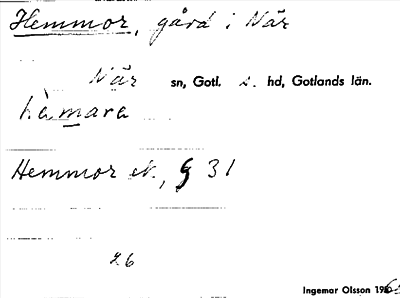 Hemmor, gård i När
När sn, Gotl. s. hd, Gotlands län.
hàmara
Hemmor N., § 31
26
Ingemar Olsson 196